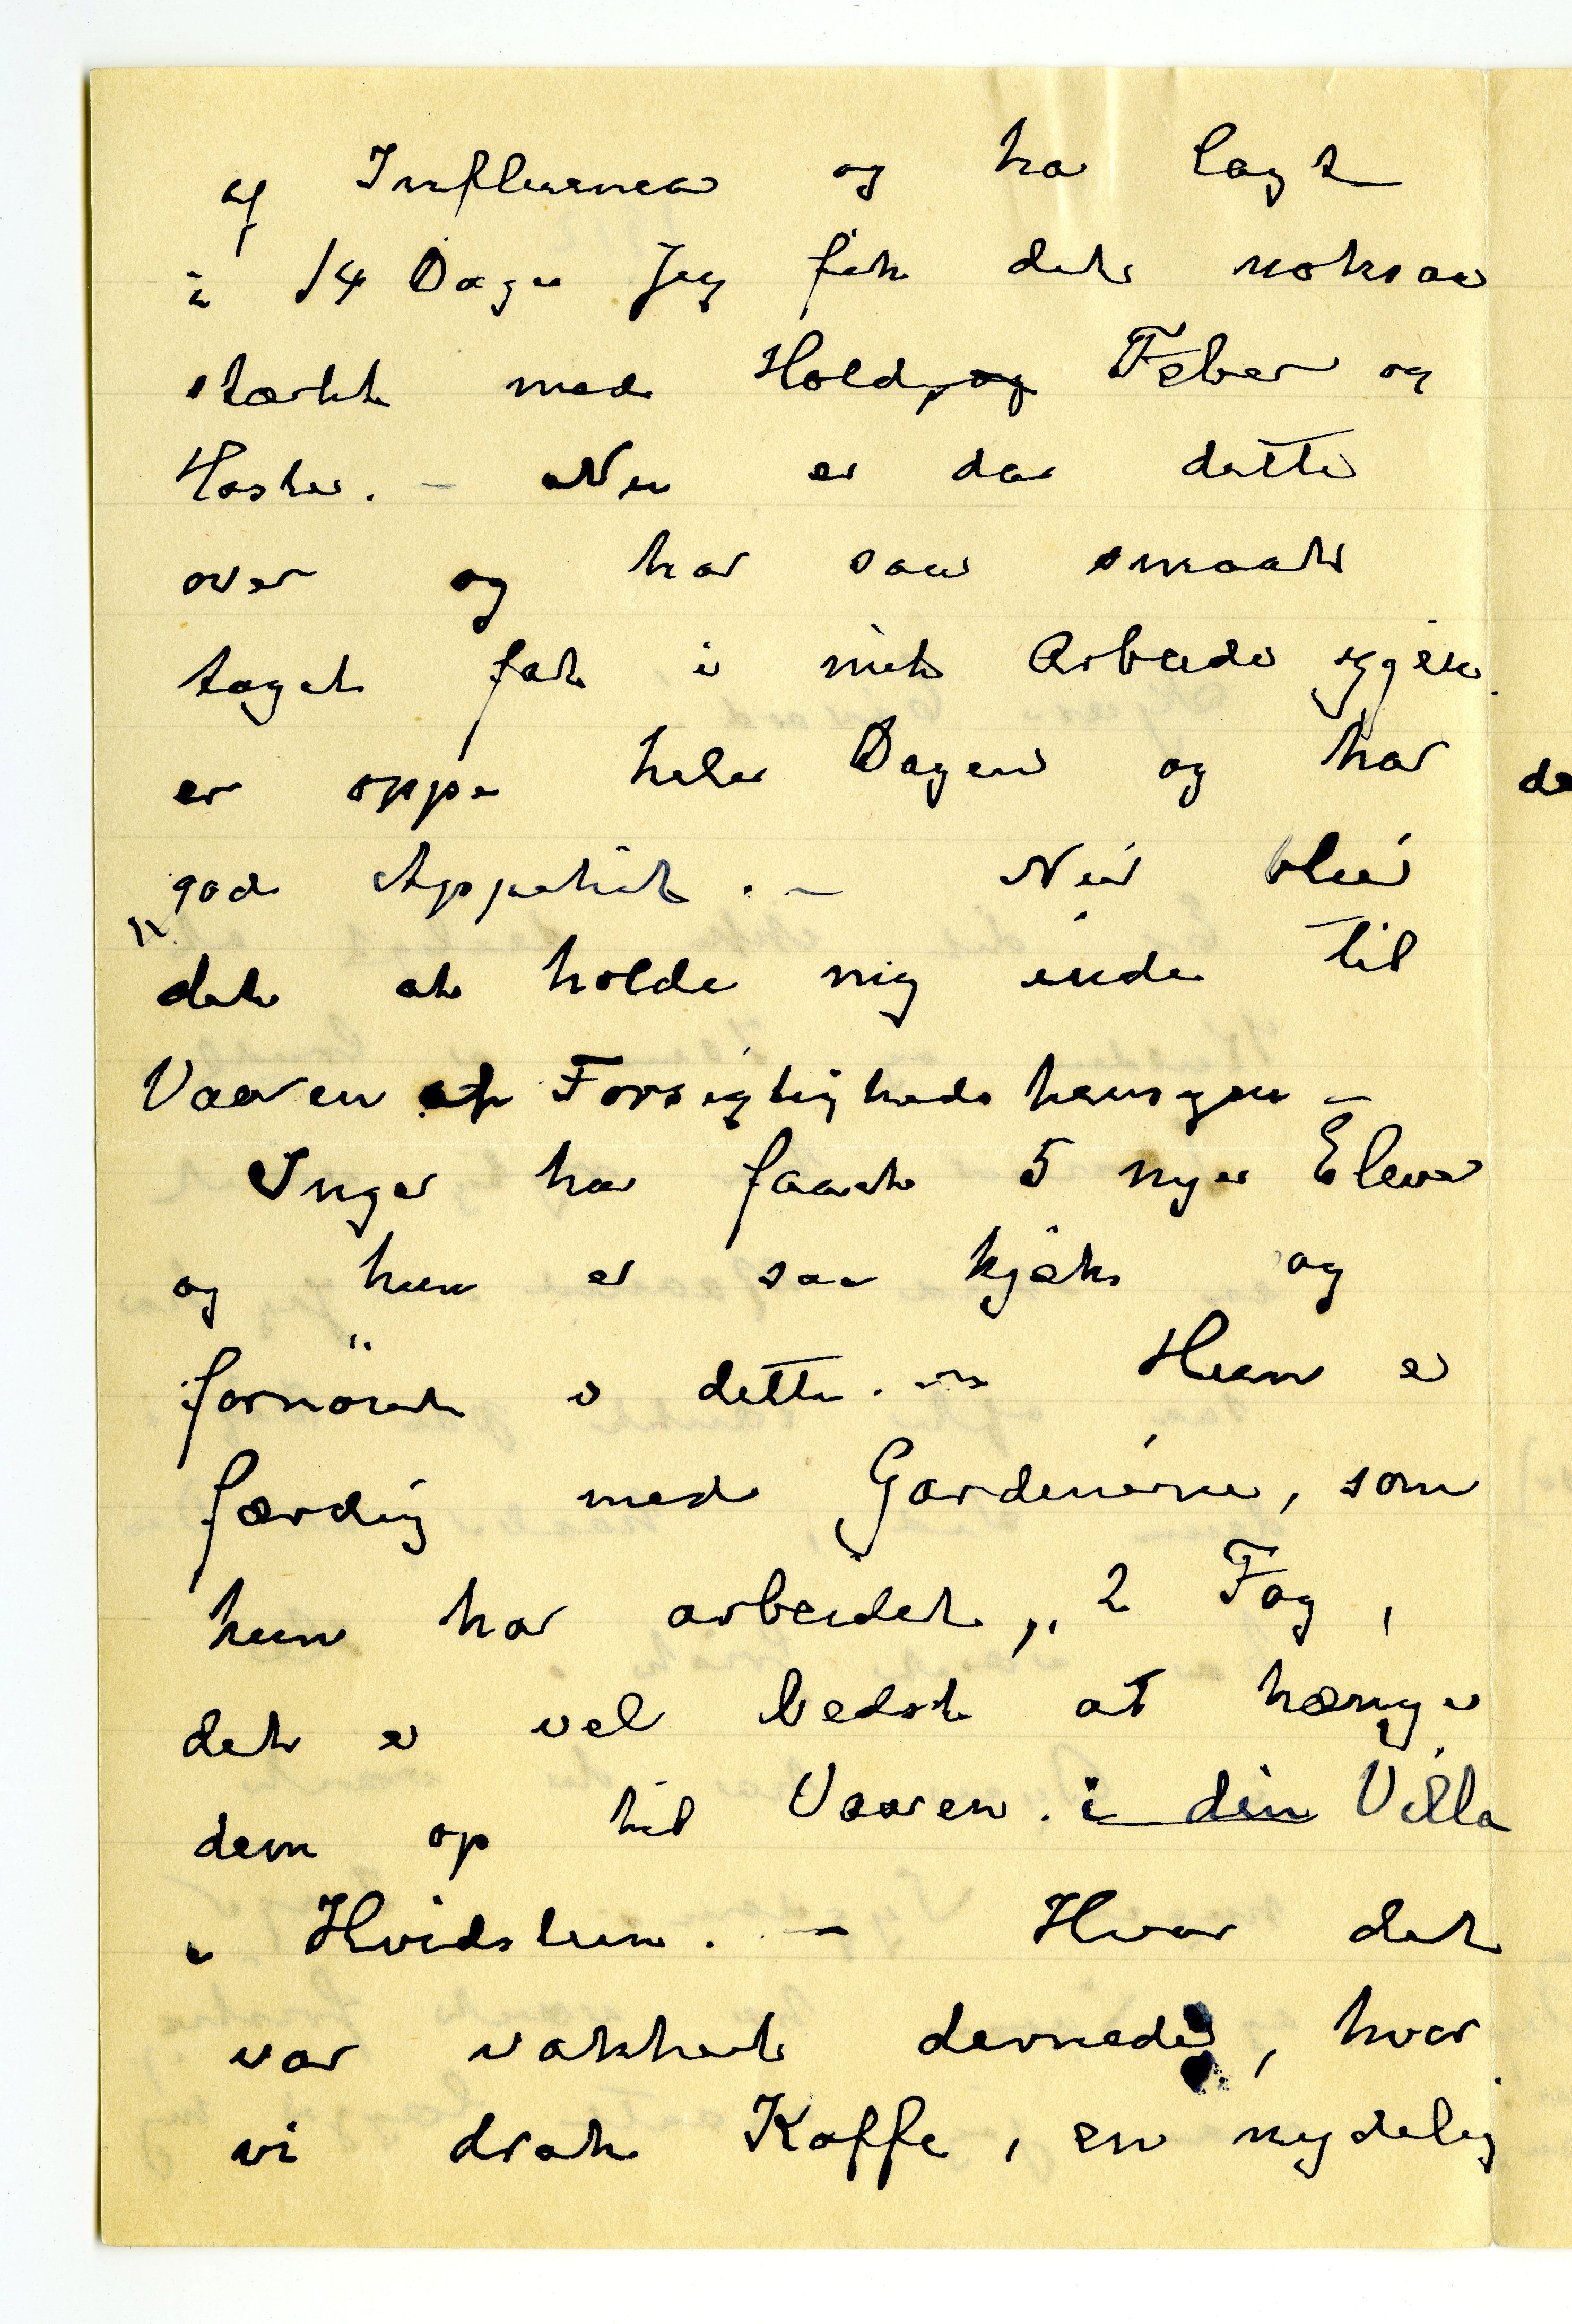 af Influensa og har lagt
i 14 Dage Jeg fik det noksaa
stærkt med Hold, og Feber og
Hoste. – Nu er da dette
over og har saa smaat
taget fat i mit Arbeide igjen.
er oppe hele Dagen og har
god Appetit. – Nu blir
det at holde mig inde til
Vaaren af Forsigtighedshensyn –
Inger har faaet 5 nye Elever
og hun er saa kjæk og
fornöiet i dette. – Hun er
færdig med Gardinerne, som
hun har arbeidet, 2 Fag,
det er vel bedst at hænge
dem op til Vaaren. i din Villa
i Hvidsten. – Hvor det
var vakkert dernede, hvor
vi drak Kaffe, en nydelig